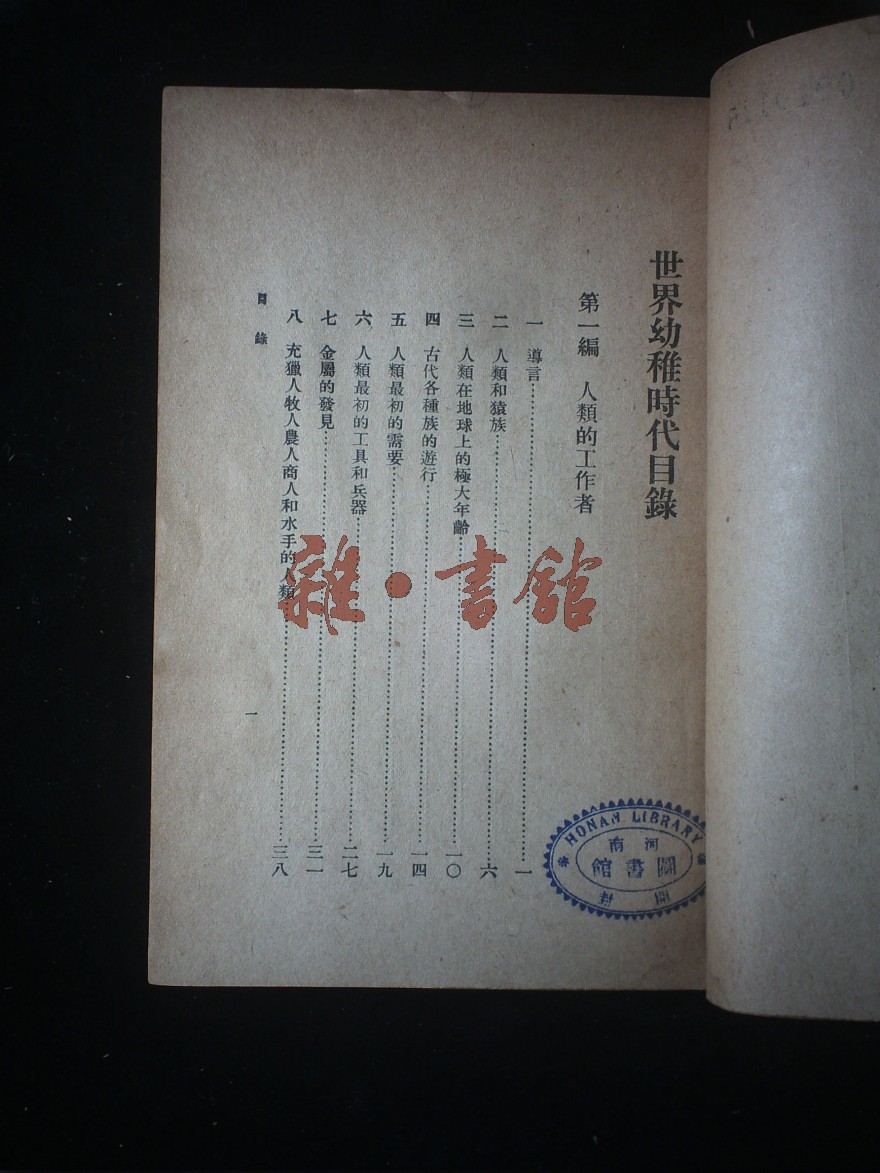 世界幼稚時代目錄
第一編　人類的工作者
一　導言……一
二　人類和猿族……六
三　人類在地球上的極大年齡……一〇
四　古代各種族的遊行……一四
五　人類最初的需要……一九
六　人類最初的工具和兵器……二七
七　金屬的發見……三一
八　充獵人牧人農人商人和水手的人類……三八
目錄
一
雜·書館
HONAN LIBRARY
河南
圖書館
開封